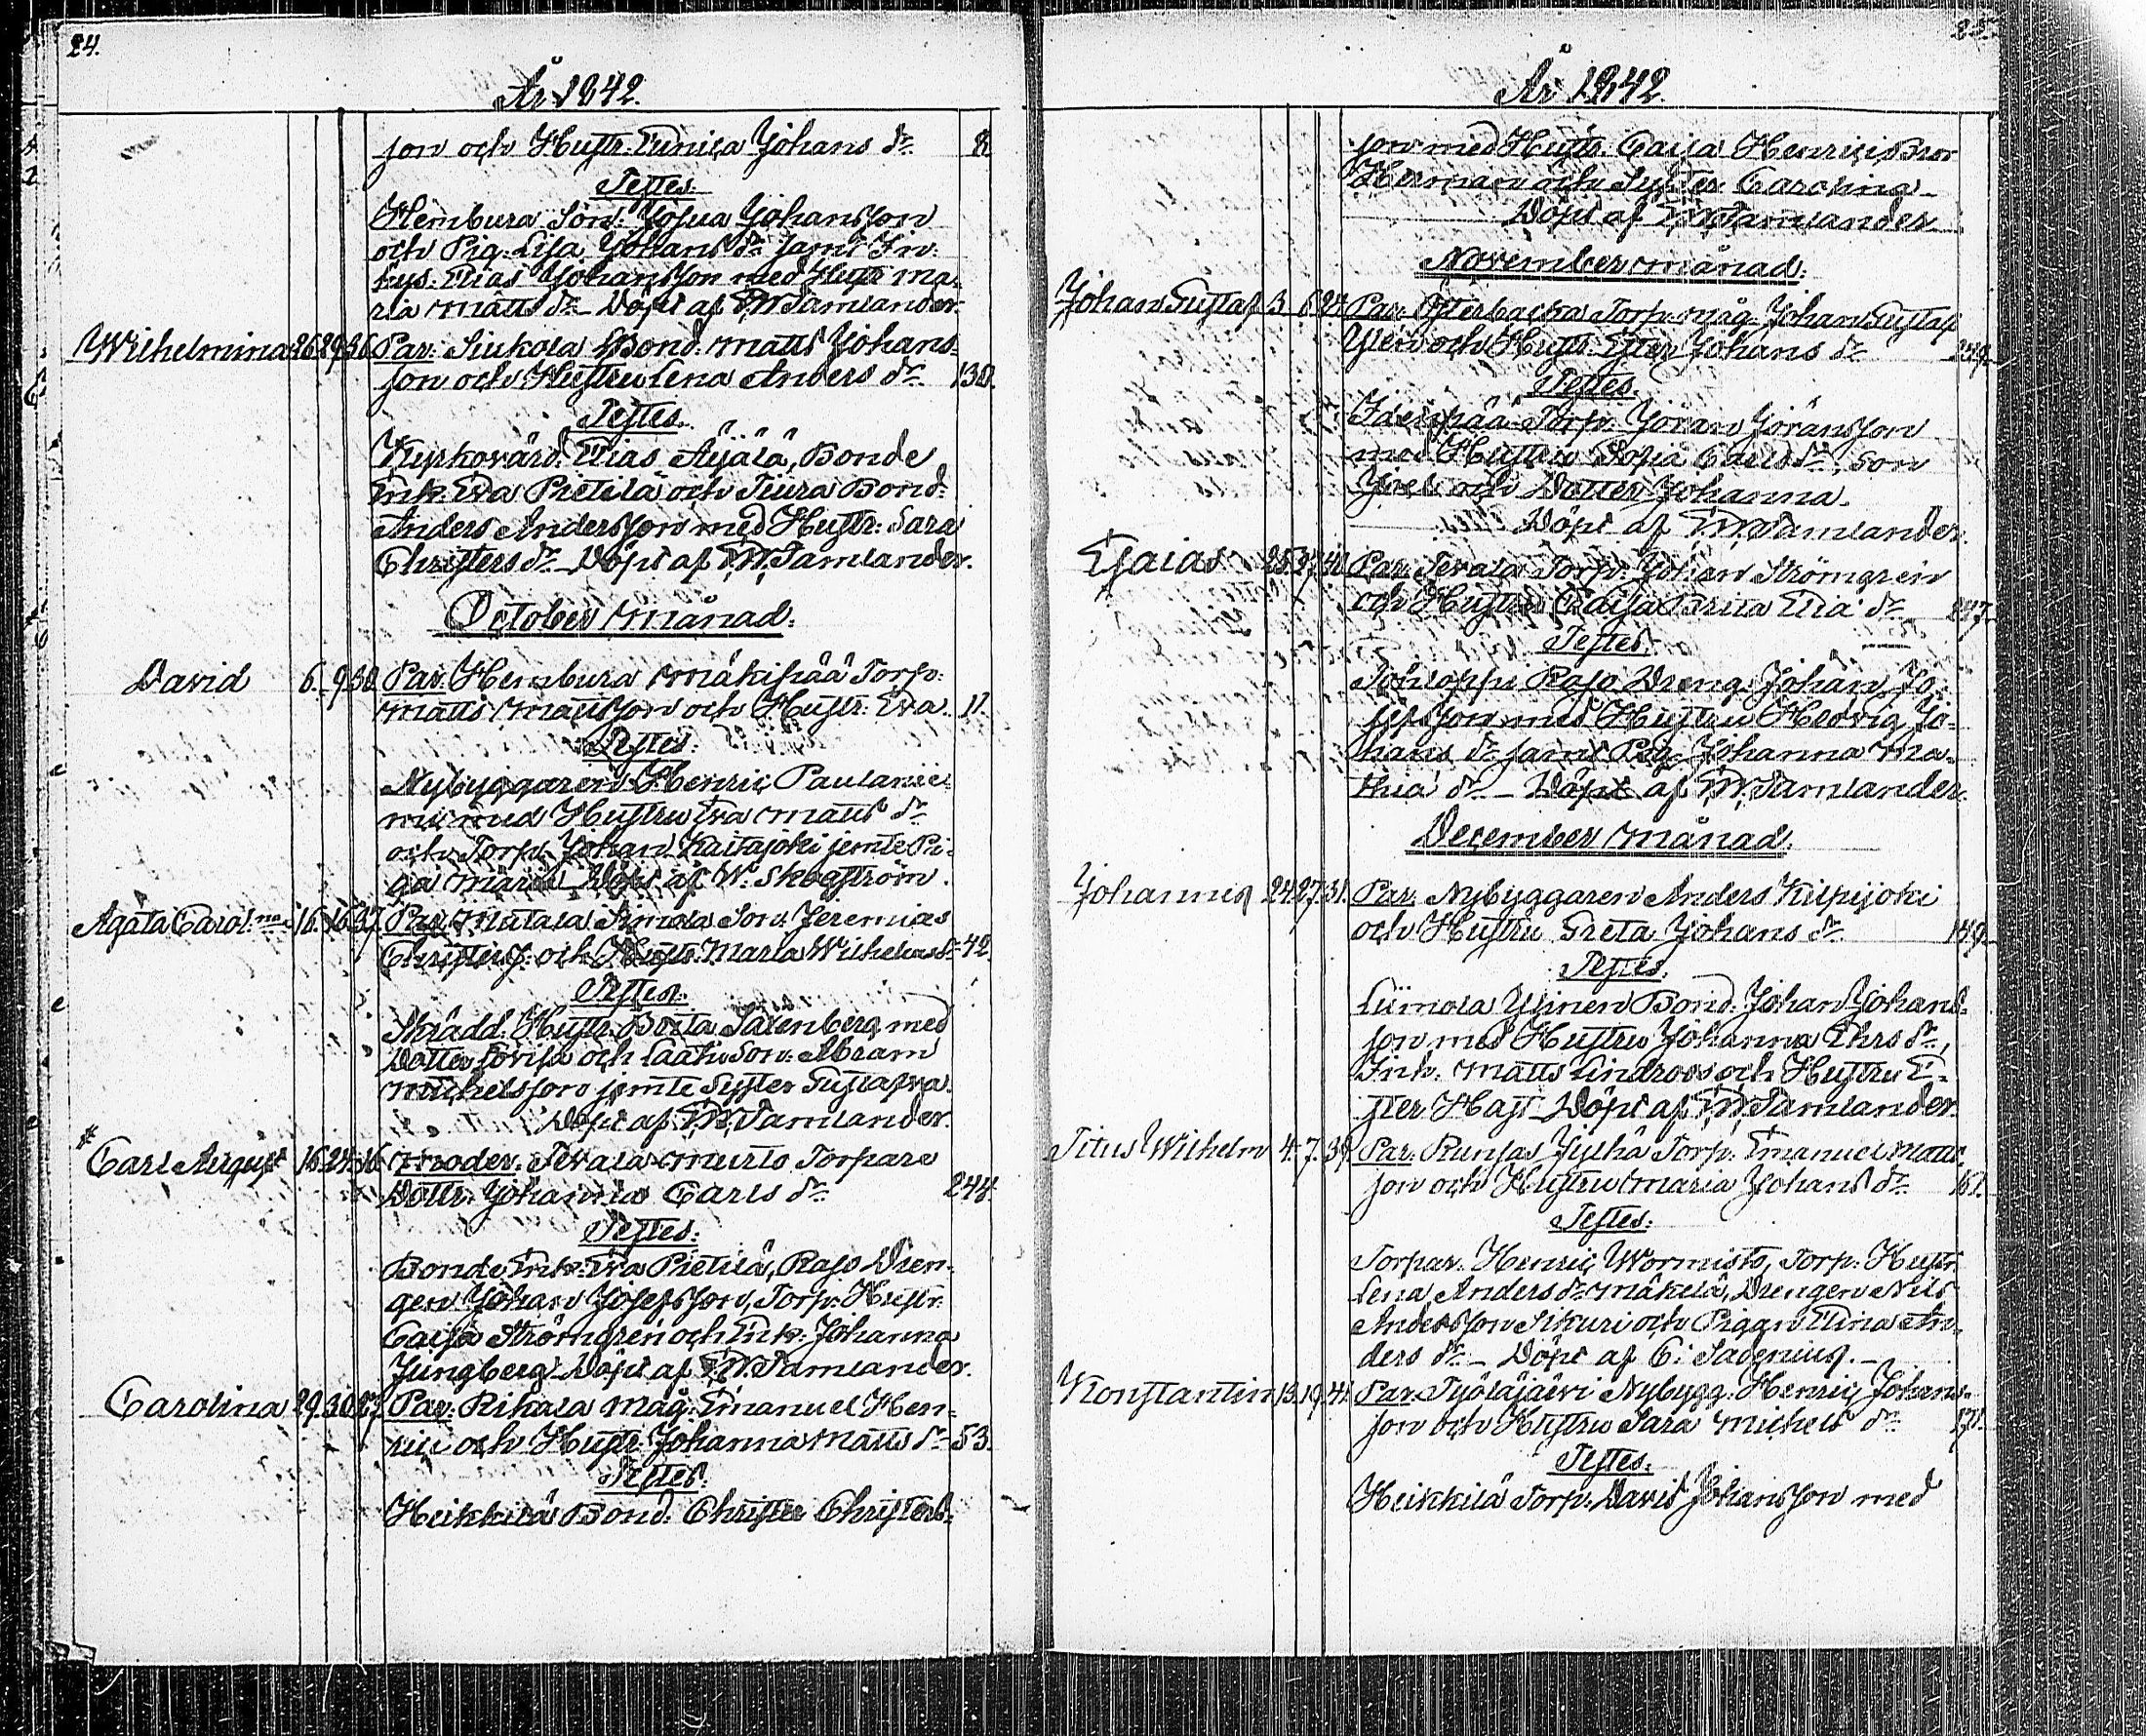 24.
År 1842.
son och Hustr: Eunica Johans dr 8.
Testes.
Hembura Son: Josua Johansson
och Pig. Lisa Johans dr samt In-
hys: Elias Johansson med Hustr Ma-
ria Matts dr Döpt af F.W. Tamlander.
Wilhelmina 26. 29. 36. Par: Siukola Bond: Matts Johans-
son och Hustru Lena Anders dr 130.
Testes.
Kyrkovärd. Elias Äijälä, Bonde
Enk: Eva Pietilä och Tiura Bond:
Anders Andersson med Hustr: Sara
Christers dr Döpt af F.W. Tamlander.
October Månad.
David 6. 9. 38. Par: Hembura Mäkipää Torp:
Matts Mattsson och Hustr: Eva 11.
Testes:
Nybyggaren Henric Paulanie-
mi med Hustru Eva Matts dr
och Torp. Johan Kaitajoki jemte Pi-
ga Maria Döpt af W. Skogström.
Agata Carol:na 16. 16. 37. Par: Matala Simola Son: Jeremias
Christers: och Hustr: Maria Wilhelms dr 42.
Testes.
Skrädd. Hustr. Brita Salenberg med
Dotter Lovisa och Laati Son: Abram
Michelsson jemte Syster Gustafva.
Döpt af F.W. Tamlander.
* Carl August 16. 24. 36. Moder. Tervala Murto Torpare
Dottr: Johanna Carls dr 244.
Testes:
Bonde Enk: Eva Pietilä, Rajo Dren-
gen Johan Josefsson, Torp: Hustr:
Caisa Strömgren och Enk: Johanna
Ljungberg Döpt af F.W. Tamlander.
Carolina 29. 30. 27. Par: Rikala Måg: Emanuel Hen-
rici och Hustr Johanna Matts dr 53.
Testes.
Heikkilä Bond: Christer Christers-
25.
År 1842.
son med Hustr. Caisa Henrici Bror
Herman och Syster Carolina
Döpt af F.W. Tamlander.
November Månad:
Johan Gustaf 3. 6. 24. Par: Österbacka Torp: Måg: Johan Gustaf
och Hustr. Ester Johans dr 249.
Testes.
Torp. Jöran Jöransson
med Hustru Sofia Carls dr, Son
Joel och Dotter Johanna.
Döpt af F.W. Tamlander.
Esaias 25. 27. Par: Tervala Torp: Johan Strömgren
och Hustru Caisa Brita Elia dr 247.
Testes.
Rajo Dreng: Johan Jo-
sefsson med Hustru Hedvig Jo-
hans dr samt Pig: Johanna Ma-
thia dr Döpt af F.W. Tamlander.
December Månad.
Johannes 24. 27. 31. Par. Nybyggaren Anders Kilpijoki
och Hustru Greta Johans dr 149.
Testes.
Liimola Ylinen Bond: Johan Johans-
son med Hustru Johanna Ehrs dr,
Inh: Matts Lindroos och Hustru E-
ster Hast Döpt af F.W. Tamlander.
Titus Wilhelm 4. 7. 39. Par: Runsas Jylhä Torp: Emanuel Matts-
son och Hustru Maria Johans dr 161.
Testes.
Torpar. Henric Wormisto, Torp: Hustr
Lena Anders dr Mäkelä, Drengen Nils
Andersson Sikuri och Pigan Elina An-
ders dr Döpt af C: Sadenius.
Konstantin 13. 19. 41. Par. Työläjärvi Nybygg: Henric Johans-
son och Hustru Sara Michels dr 171.
Testes.
Heikkilä Torp: David Johansson med